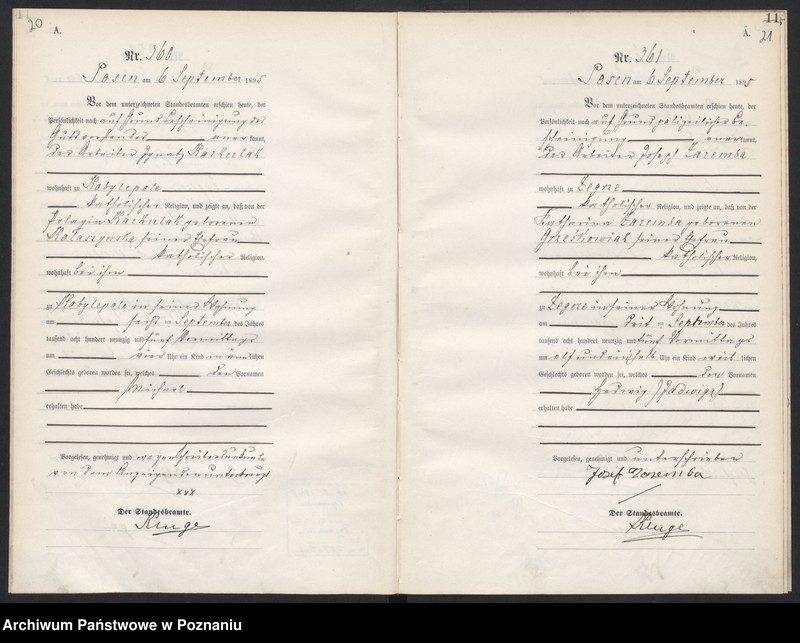 20
A.
Nr. 360
Posen am 6 September 1895
Vor dem unterzeichneten Standesbeamten erschien heute, der
Persönlichkeit nach auf Grund Bescheinigung des
Gutsvorstandes anerkannt,
der Arbeiter Ignatz Karkulak
wohnhaft zu Kobylepole
katholischer Religion, und zeigte an, daß von der
Pelagia Karkulak geborenen
seiner Ehefrau
katholischer Religion,
wohnhaft bei ihm
zu Kobylepole in seiner Wohnung
am sechs ten September des Jahres
tausend acht hundert neunzig und fünf Vormittags
um vier Uhr ein Kind männlichen
Geschlechts geboren worden sei, welches den Vornamen
Michael
erhalten habe
Vorgelesen, genehmigt und wegen Schreibensunkunde
von dem Anzeigenden unterkreuzt
xxx
Der Standesbeamte.
Kluge
11
A.
21
Nr. 361
Posen am 6 September 1895
Vor dem unterzeichneten Standesbeamten erschien heute, der
Persönlichkeit nach auf Grund polizeilicher Be
scheinigung anerkannt,
der Arbeiter Joseph Zaremba
wohnhaft zu Zegrze
katholischer Religion, und zeigte an, daß von der
Katharina Zaremba geborenen
Grześkowiak seiner Ehefrau
katholischer Religion,
wohnhaft bei ihm
zu Zegrze in seiner Wohnung
am ten September des Jahres
tausend acht hundert neunzig und fünf Vormittags
um elf und ein halb Uhr ein Kind weiblichen
Geschlechts geboren worden sei, welches den Vornamen
Hedwig (Jadwiga)
erhalten habe
Vorgelesen, genehmigt und unterschrieben
Józef Zaremba
Der Standesbeamte.
Kluge
Archiwum Państwowe w Poznaniu